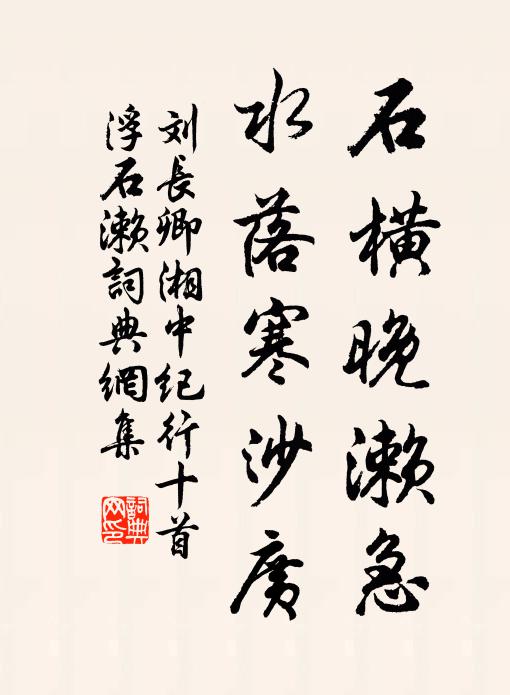 石橫晚瀨急
水落寒沙廣
刘長卿湘中纪行十首
浮石瀨詞典網集
詞典
网印